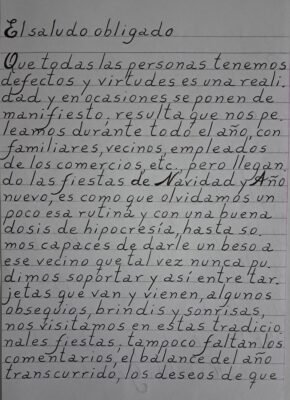 El saludo obligado
Que todas las personas tenemos
defectos y virtudes es una reali-
dad y en ocasiones se ponen de
manifiesto, resulta que nos pe-
leamos durante todo el año, con
familiares, vecinos, empleados
de los comercios, etc., pero llegan-
do las fiestas de Navidad y Año
nuevo, es como que olvidamos un
poco esa rutina y con una buena
dosis de hipocresía, hasta so-
mos capaces de darle un beso a
ese vecino que tal vez nunca pu-
dimos soportar y así entre tar-
jetas que van y vienen, algunos
obsequios, brindis y sonrisas,
nos visitamos en estas tradicio-
nales fiestas; tampoco faltan los
comentarios, el balance del año
transcurrido, los deseos de que